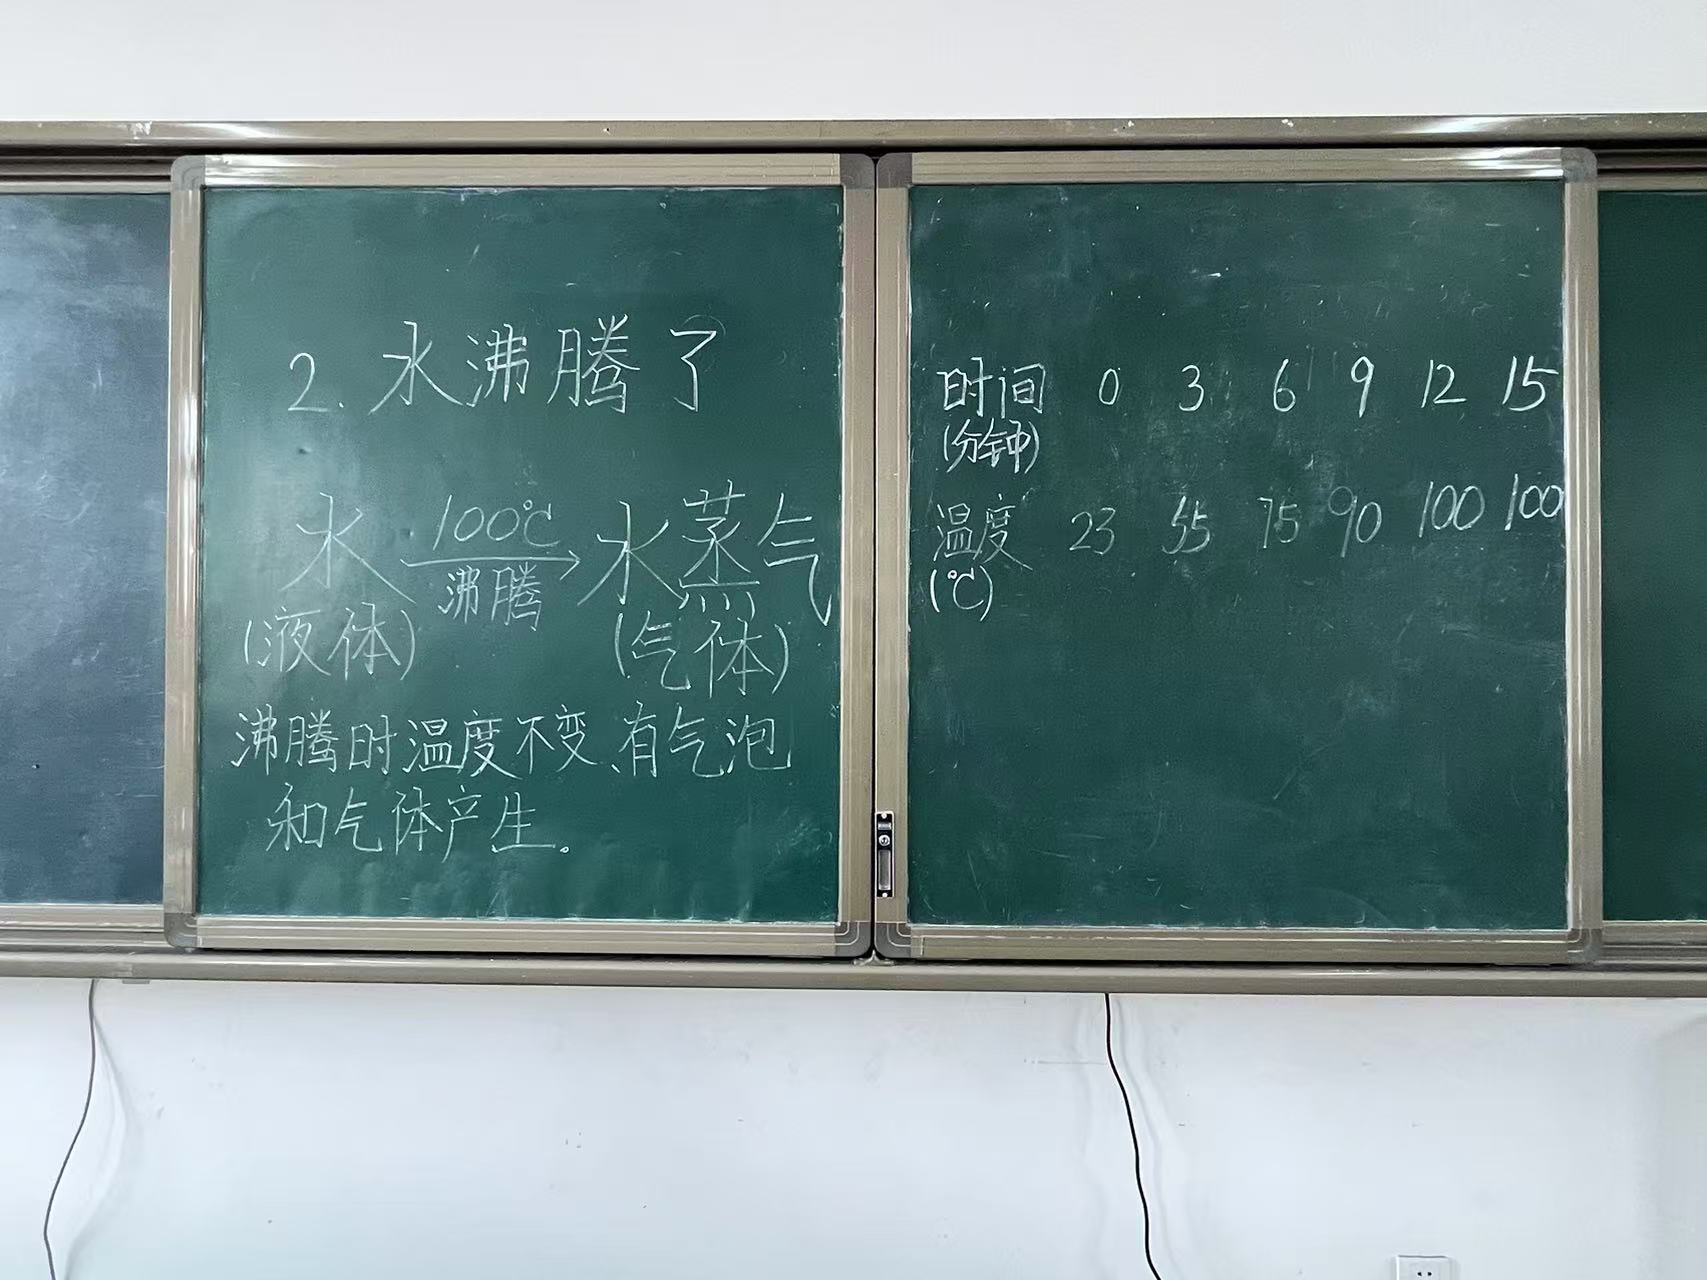 2. 水沸腾了
水 100℃ 沸腾 水蒸气
(液体) (气体)
沸腾时温度不变、有气泡
和气体产生。
时间 0 3 6 9 12 15
(分钟)
温度 23 55 75 90 100 100
(℃)